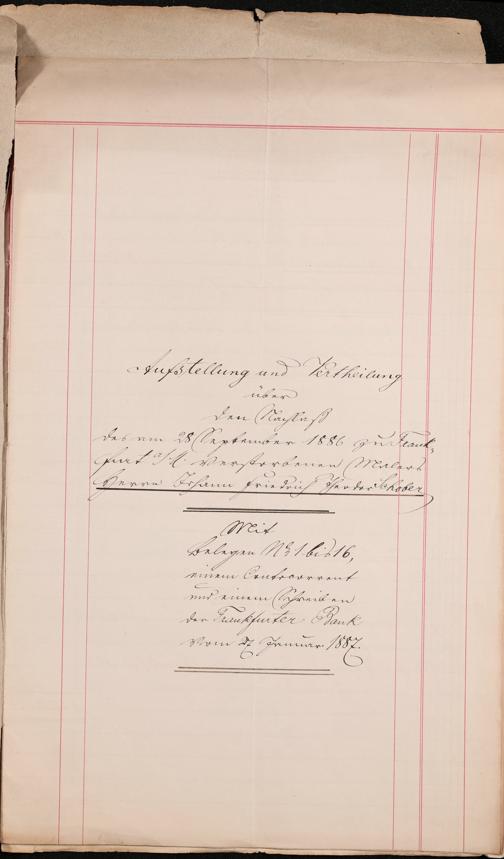 Aufstellung und Vertheilung
über
den Nachlaß
des am 28 September 1886 zu Frank-
furt a/M. verstorbenen Malers
Herrn Johann Friedrich Theodor Schober
Mit
Belegen No 1 bis 16,
einem Contocorrent
und einem Schreiben
der Frankfurter Bank
vom Januar 1887.